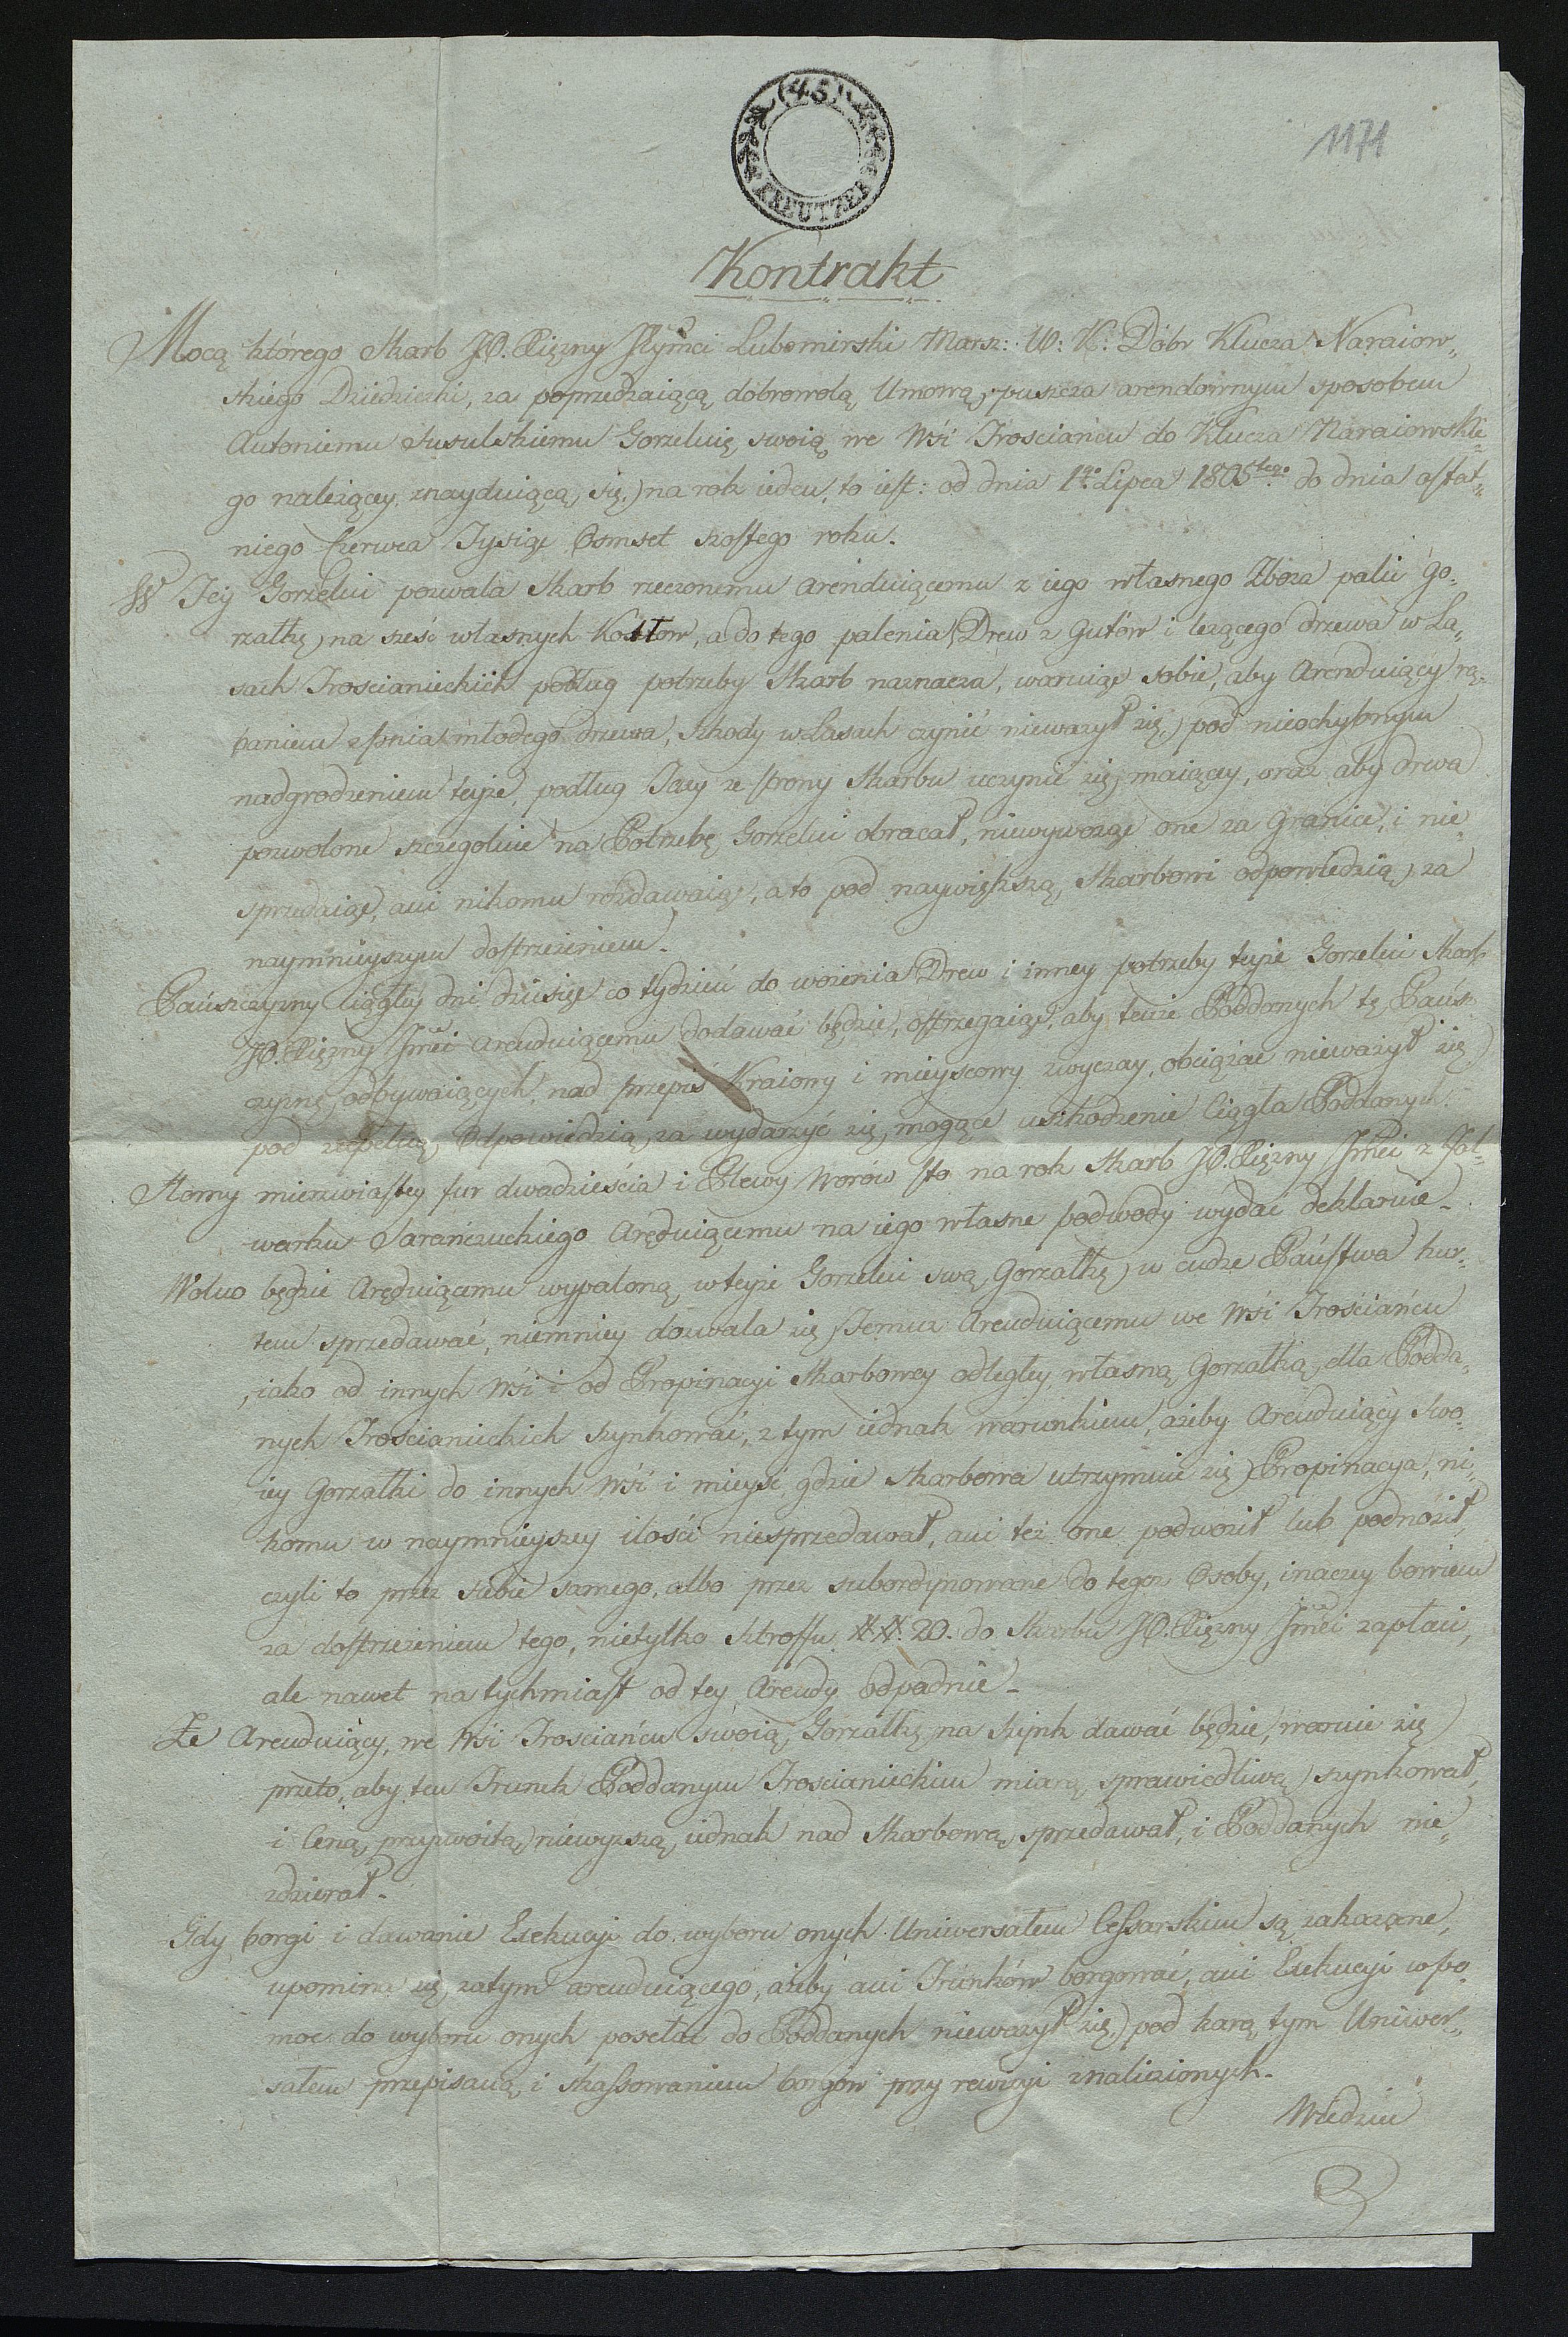 (45)
KREUTZER
1171
Kontrakt
Mocą którego Skarb JO. Xiężny Jeymci Lubomirski Marsz: W: K: Dóbr Klucza Naraiow„
skiego Dziedziczki, za poprzedzaiącą dobrowolą Umową, puszcza arendownym sposobem
Antoniemu Susulskiemu Gorzelnię swoią we Wśi Trościańcu do Klucza Naraiowskie„
go należącey, znayduiącą się, na rok ieden, to iest: od dnia 1go Lipca 1805tego do dnia ostat„
niego Czerwca Tysiąc Osmset szostego roku.
W Tey Gorzelni pozwala Skarb rzeczonemu Arenduiącemu z iego własnego Zboża palić Go„
rzałkę na sześć własnych Kotłow, a do tego palenia Drew z Gutów i leżącego drzewa w La„
sach Trościanieckich podług potrzeby Skarb naznacza, waruiąc sobie, aby Arenduiący rą„
baniem z pnia młodego drzewa, Szkody w Lasach czynić nieważył się, pod nieochybnym
nadgrodzeniem teyże, podług Taxy ze strony Skarbu uczynić się maiącey, oraz aby drwa
pozwolone szczegolnie na Potrzebę Gorzelni obracał, niewywożąc one za Granice, i nie„
sprzedaiąc, ani nikomu rozdawaiąc, a to pod naywiększą Skarbowi odpowiedzią za
naymnieyszym dostrzeżeniem.
Pańszczyzny ciągłey dni dziesięć co tydzień do wożenia Drew i inney potrzeby teyże Gorzelni Skarb
JO. Xiężny Jmci Arenduiącemu dodawać będzie, ostrzegaiąc, aby tenże Poddanych tę Pańsz„
czyznę odbywaiących, nad przepis Kraiowy i mieyscowy zwyczay, obciążać nieważył się
pod zupełną Odpowiedzią za wydarzyć się mogące uszkodzenie Ciągła Poddanych.
Słomy mierzwiastey fur dwadzieścia i Plewy Worów sto na rok Skarb JO. Xiężny Jmci z Fol„
warku Sarańczuckiego Aręduiącemu na iego własne podwody wydać deklaruie.
Wolno będzie Aręduiącemu wypaloną w teyże Gorzelni swą Gorzałkę w cudze Państwa hur„
tem sprzedawać, niemniey dozwala się Temuż Arenduiącemu we Wśi Trościańcu
, iako od innych Wśi i od Propinacyi Skarbowey odległey, własną Gorzałką dla Podda„
nych Trościanieckich szynkować, z tym iednak warunkiem, ażeby Arenduiący swo„
iey Gorzałki do innych Wśi i mieysc, gdzie Skarbowa utrzymuie się Propinacya, ni„
komu w naymnieyszey ilośći niesprzedawał, ani też one podwoził lub podnosił,
czyli to przez siebie samego, albo przez subordynowane do tegoż Osoby, inaczey bowiem
za dostrzeżeniem tego, nietylko Sztroffu ## 20. do Skarbu JO. Xiężny Jmci zapłaci,
ale nawet natychmiast od tey Arendy odpadnie.
Że Arenduiący, we Wśi Trościańcu swoią Gorzałkę na Szynk dawać będzie, waruie się
przeto, aby ten Trunek Poddanym Trościanieckim miarą sprawiedliwą szynkował,
i Ceną przyzwoitą, niewyższą iednak nad Skarbową sprzedawał, i Poddanych nie„
zdzierał.
Gdy borgi i dawanie Exekucyi do wyboru onych Uniwersałem Cesarskim są zakazane,
upomina się zatym arenduiącego, ażeby ani Trunków borgować, ani Exekucyi w po„
moc do wyboru onych posełać do Poddanych nieważył się, pod karą tym Uniwer„
sałem przepisaną i skassowaniem borgów przy rewizyi znalezionych.
Wiedzieć